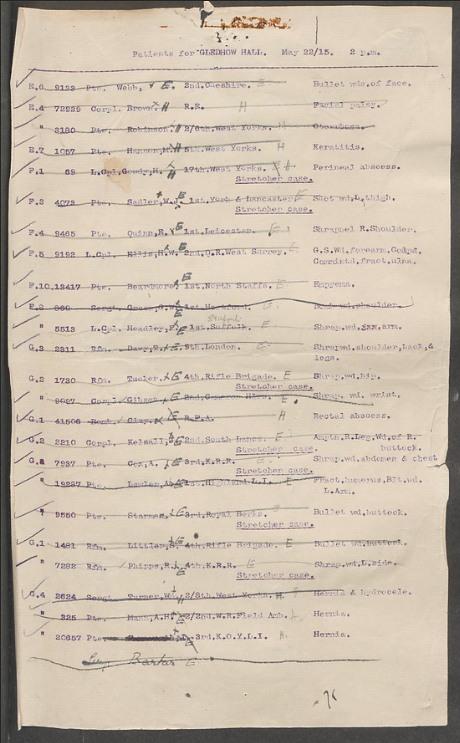 Patients for GLEDHOW HALL. May 22/15. 2 p.m.
E.6 9122 Pte. Webb, E. 2nd.Cheshire. E Bullet wd. of face.
E.4 72839 Corpl. Brown. H R.E. H Facial palsy.
" 3180 Pte. Robinson. H 2/6th.West Yorks. H
E.7 1057 Pte. H 5th.West Yorks. H Keratitis.
F.1 L.Cpl. H. 17th.West Yorks. H Perineal abscess.
Stretcher case.
F.3 4073 Pte. Sadler, W.J. E 1st.York & Lancaster. E Shot wd.L.thigh.
Stretcher case.
F.4 9465 Pte. Quinn, E 1st.Leicester. E Shrapnel R.Shoulder.
F.5 9192 L.Cpl. Ellis, H.W. E 2nd.Q.R.West Surrey. E G.S.Wd.forearm,
fract.ulna.
F.10. 12417 Pte. Beardmore E 1st.North Staffs. E Empyema.
Sergt. 1st. shoulder.
" 5513 L.Cpl. Headley, E 1st.Suffolk. E Shrap.wd. arm.
G.3 2311 Rfm. Davy, E 5th.London. E Shrap.wd.shoulder, back, &
legs.
G.2 1730 Rfm. Tucker. E 4th.Rifle Brigade. E Shrap.wd.hip.
Stretcher case.
" Corpl. E 2nd.Cameron E. Shrap. wd. wrist.
G.1 41506 Clay. R.F.A. H Rectal abscess.
G.2 2210 Corpl. Kelsall, E 2nd.South Lancs. E Amptn.R.Leg,Wd.of R.
Stretcher case. buttock.
G.2 7937 Pte. Cox, A. E 3rd.K.R.R. E Shrap.wd.abdomen & chest
Stretcher case.
" 12227 Pte. 1st.Highland L.I. E Fract.humerus,Blt.wd.
L.Arm.
" 9550 Pte. E 3rd.Royal Berks. E Bullet wd.buttock.
Stretcher case.
G.1 1481 Rfm. E 4th.Rifle Brigade. E Bullet wd.buttock.
" 7282 Rfm. Phipps, R. E 4th.K.R.R. E Shrap.wd.L.side.
Stretcher case.
G.4 2624 Sergt. Turner, Wm. H 2/8th.West Yorks. H Hernia & hydrocele.
" 325 Pte. Mann, A.H. 2/2nd.W.R.Field Amb. Hernia.
" 20657 Pte. 3rd.K.O.Y.L.I. H. Hernia.
Barker E